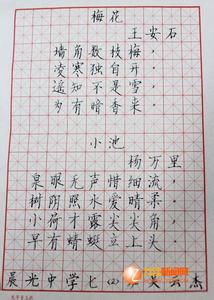 梅花
王安石
墙角数枝梅,
凌寒独自开。
遥知不是雪,
为有暗香来。
小池
杨万里
泉眼无声惜细流,
树阴照水爱晴柔。
小荷才露尖尖角,
早有蜻蜓立上头。
晨光中学七(2) 吴云杰